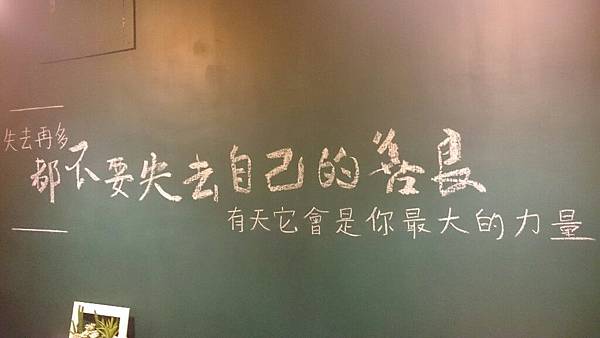 失去再多
都不要失去自己的善良
有天它會是你最大的力量